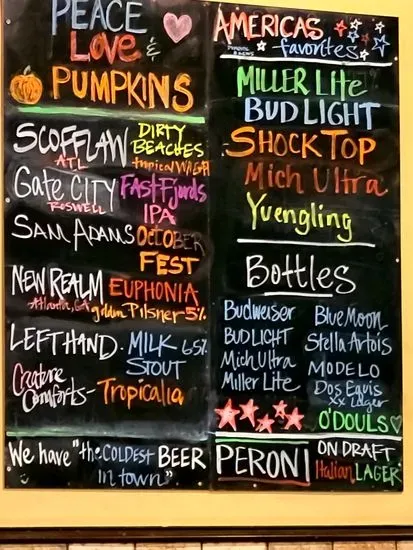 PEACE
LOVE &
PUMPKINS
SCOFFLAW DIRTY BEACHES
ATL tropical WHEAT
GATE CITY FAST Fjords
ROSWELL IPA
SAM ADAMS OCTOBER
FEST
NEW REALM EUPHONIA
Atlanta, GA golden Pilsner 5%
LEFT HAND - MILK 6.5%
STOUT
Creature Comforts - Tropicalia
We have "the COLDEST BEER
in town".
AMERICAS
Domestic favorites
MILLER LITE
BUD LIGHT
SHOCK TOP
Mich Ultra
Yuengling
Bottles
Budweiser
BUD LIGHT
Mich Ultra
Miller Lite
Blue Moon
Stella Artois
MODELO
Dos Equis
XX Lager
O'DOULS
PERONI ON DRAFT
Italian LAGER